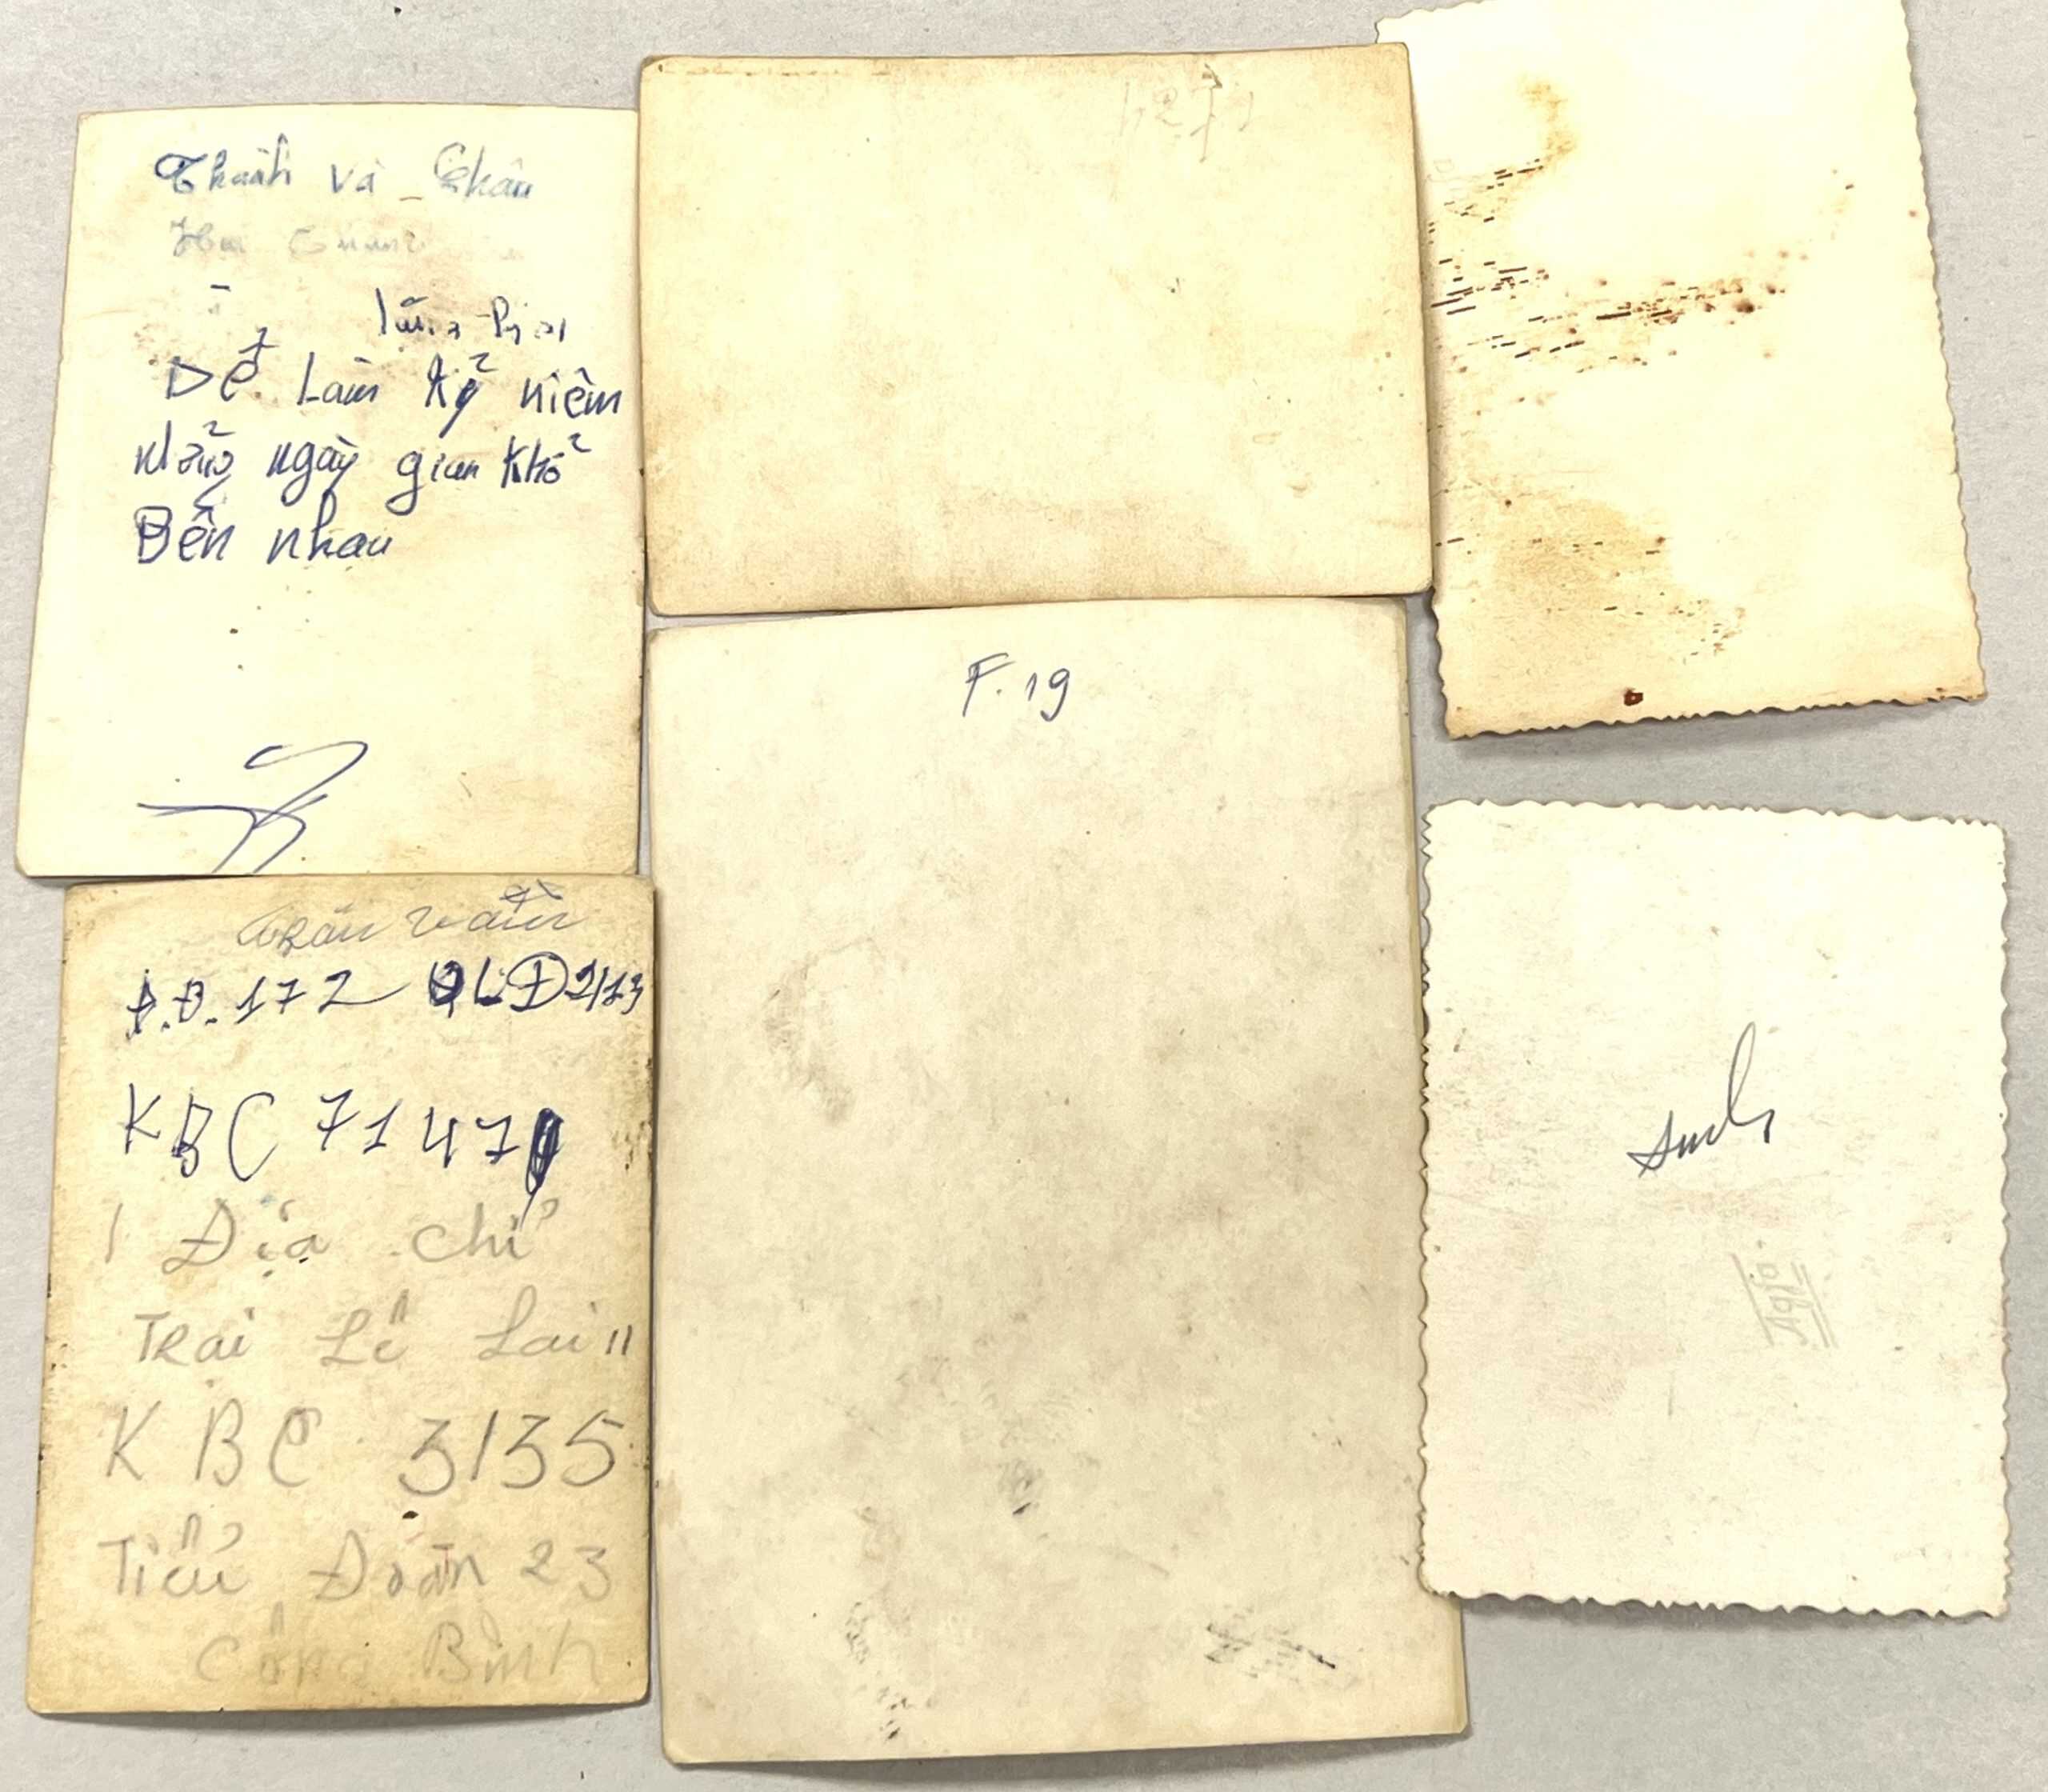 Thành và Châu
Để Làm kỷ niệm
những ngày gian khổ
Bên nhau
F. 19
Trần văn
Đ.Đ. 172 QLĐ 2/23
KBC 7147
Địa chỉ
Trại Lê Lai
KBC 3135
Tiểu Đoàn 23
Công Binh
Agfa